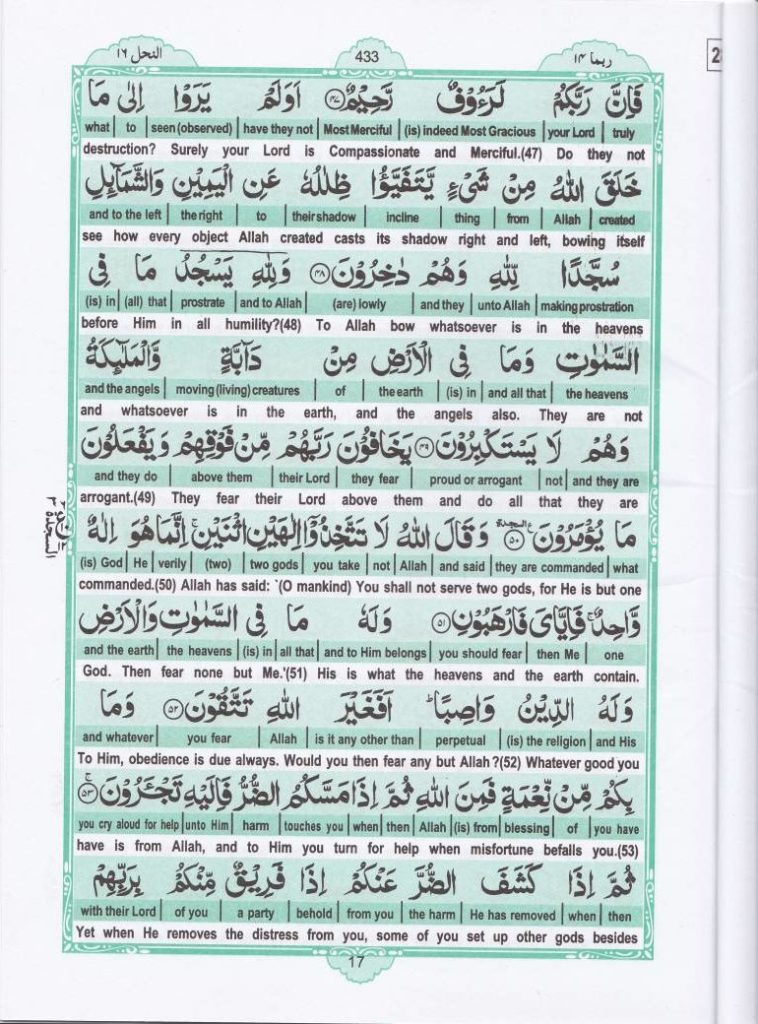 النحل ١٦ 433 ربما ١٤
2
فَاِنَّ رَبَّكُمْ لَرَءُوْفٌ رَّحِيْمٌ ﴿٤٧﴾ اَوَلَمْ يَرَوْا اِلٰى مَا
what | to | seen (observed) | have they not | Most Merciful | (is) indeed Most Gracious | your Lord | truly
destruction? Surely your Lord is Compassionate and Merciful.(47) Do they not
خَلَقَ اللّٰهُ مِنْ شَىْءٍ يَّتَفَيَّؤُا ظِلٰلُهٗ عَنِ الْيَمِيْنِ وَالشَّمَآئِلِ
and to the left | the right | to | their shadow | incline | thing | from | Allah | created
see how every object Allah created casts its shadow right and left, bowing itself
سُجَّدًا لِّلّٰهِ وَهُمْ دٰخِرُوْنَ ﴿٤٨﴾ وَلِلّٰهِ يَسْجُدُ مَا فِى
(is) in | (all) that | prostrate | and to Allah | (are) lowly | and they | unto Allah | making prostration
before Him in all humility?(48) To Allah bow whatsoever is in the heavens
السَّمٰوٰتِ وَمَا فِى الْاَرْضِ مِنْ دَآبَّةٍ وَّالْمَلٰٓئِكَةُ
and the angels | moving (living) creatures | of | the earth | (is) in | and all that | the heavens
and whatsoever is in the earth, and the angels also. They are not
وَهُمْ لَا يَسْتَكْبِرُوْنَ ﴿٤٩﴾ يَخَافُوْنَ رَبَّهُمْ مِّنْ فَوْقِهِمْ وَيَفْعَلُوْنَ
and they do | above them | their Lord | they fear | proud or arrogant | not | and they are
arrogant.(49) They fear their Lord above them and do all that they are
مَا يُؤْمَرُوْنَ ﴿٥٠﴾ السجدة وَقَالَ اللّٰهُ لَا تَتَّخِذُوْٓا اِلٰهَيْنِ اثْنَيْنِ ۚ اِنَّمَا هُوَ اِلٰهٌ
السجدة ٣
(is) God | He | verily | (two) | two gods | you take | not | Allah | and said | they are commanded | what
commanded.(50) Allah has said: `(O mankind) You shall not serve two gods, for He is but one
وَّاحِدٌ ۚ فَاِيَّاىَ فَارْهَبُوْنِ ﴿٥١﴾ وَلَهٗ مَا فِى السَّمٰوٰتِ وَالْاَرْضِ
and the earth | the heavens | (is) in | all that | and to Him belongs | you should fear | then Me | one
God. Then fear none but Me.'(51) His is what the heavens and the earth contain.
وَلَهُ الدِّيْنُ وَاصِبًا ؕ اَفَغَيْرَ اللّٰهِ تَتَّقُوْنَ ﴿٥٢﴾ وَمَا
and whatever | you fear | Allah | is it any other than | perpetual | (is) the religion | and His
To Him, obedience is due always. Would you then fear any but Allah?(52) Whatever good you
بِكُمْ مِّنْ نِّعْمَةٍ فَمِنَ اللّٰهِ ثُمَّ اِذَا مَسَّكُمُ الضُّرُّ فَاِلَيْهِ تَجْئَرُوْنَ ۚ﴿٥٣﴾
you cry aloud for help | unto Him | harm | touches you | when | then | Allah | (is) from | blessing | of | you have
have is from Allah, and to Him you turn for help when misfortune befalls you.(53)
ثُمَّ اِذَا كَشَفَ الضُّرَّ عَنْكُمْ اِذَا فَرِيْقٌ مِّنْكُمْ بِرَبِّهِمْ
with their Lord | of you | a party | behold | from you | the harm | He has removed | when | then
Yet when He removes the distress from you, some of you set up other gods besides
17